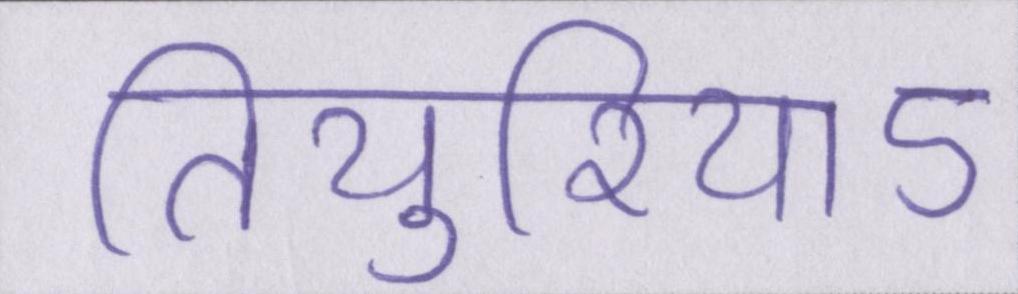 तियुरियाऽ